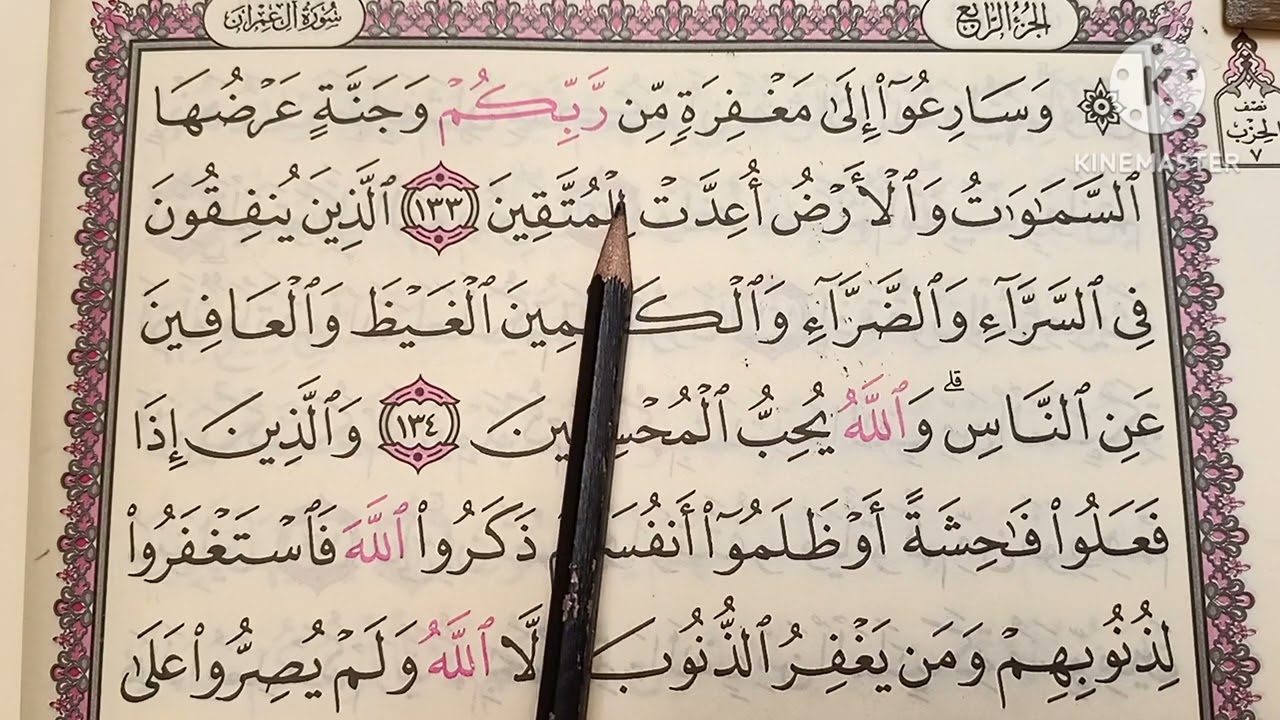 سُورَةُ آلِ عِمْرَان
الجُزْءُ الرَّابِع
KINEMASTER
نصف
الحزب
٧
۞ وَسَارِعُوٓا۟ إِلَىٰ مَغْفِرَةٍ مِّن رَّبِّكُمْ وَجَنَّةٍ عَرْضُهَا
ٱلسَّمَـٰوَٰتُ وَٱلْأَرْضُ أُعِدَّتْ لِلْمُتَّقِينَ ١٣٣ ٱلَّذِينَ يُنفِقُونَ
فِى ٱلسَّرَّآءِ وَٱلضَّرَّآءِ وَٱلْغَيْظَ وَٱلْعَافِينَ
عَنِ ٱلنَّاسِ ۗ وَٱللَّهُ يُحِبُّ ٱلْمُحْسِنِينَ ١٣٤ وَٱلَّذِينَ إِذَا
فَعَلُوا۟ فَـٰحِشَةً أَوْ ظَلَمُوٓا۟ أَنفُسَهُمْ ذَكَرُوا۟ ٱللَّهَ فَٱسْتَغْفَرُوا۟
لِذُنُوبِهِمْ وَمَن يَغْفِرُ ٱلذُّنُوبَ إِلَّا ٱللَّهُ وَلَمْ يُصِرُّوا۟ عَلَىٰ